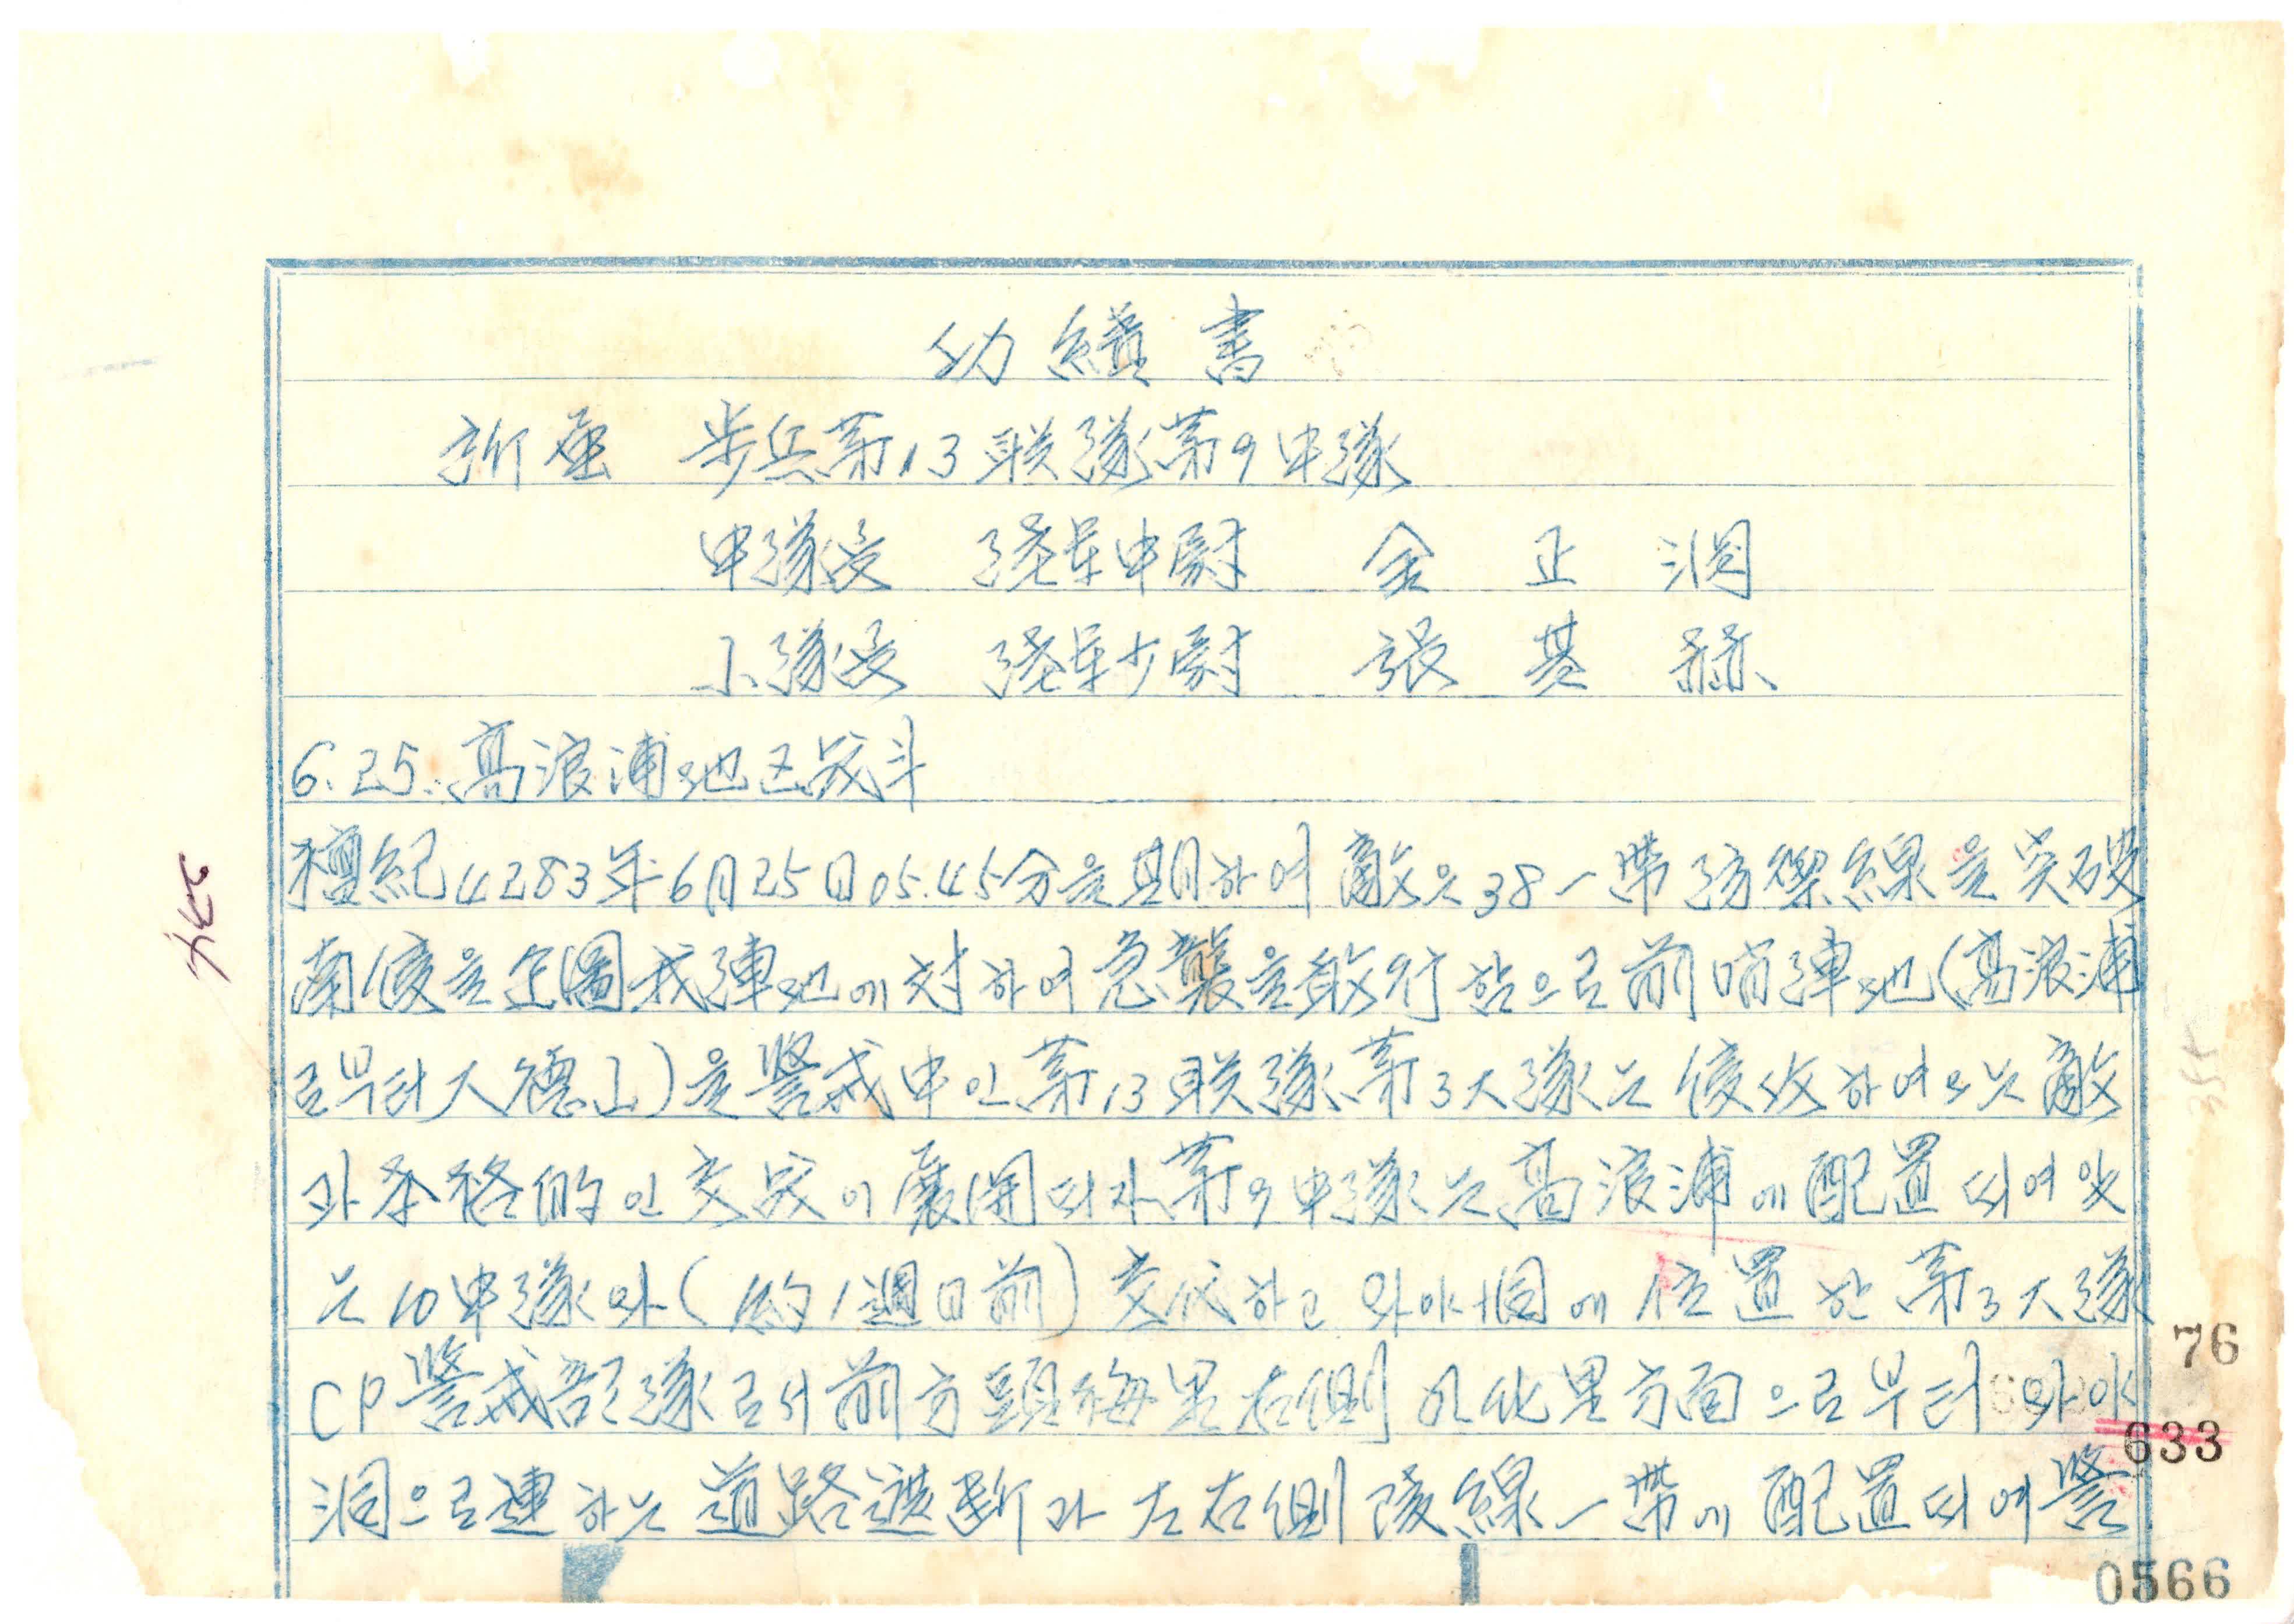 功績書
所屬 步兵第13联隊第9中隊
中隊長 陸軍中尉 金正洞
小隊長 陸軍少尉 張基
6.25. 高浪浦地区战斗
檀紀4283年6月25日05.45分을期하여敵은38一帶防禦線을突破
南侵을企圖我陣地에対하여急襲을敢行함으로前哨陣地(高浪浦
로부터大德山)을警戒中인第13联隊第3大隊는侵攻하여오는敵
과本格的인交战이展開되자第9中隊는高浪浦에配置되여있
는10中隊와(約1週日前)交代하고와야洞에位置한第3大隊
CP警戒部隊로서前方 梅里右側 化里方面으로부터와야
洞으로連하는道路遮断과左右側陵線一帶에配置되여警
76
633
0566